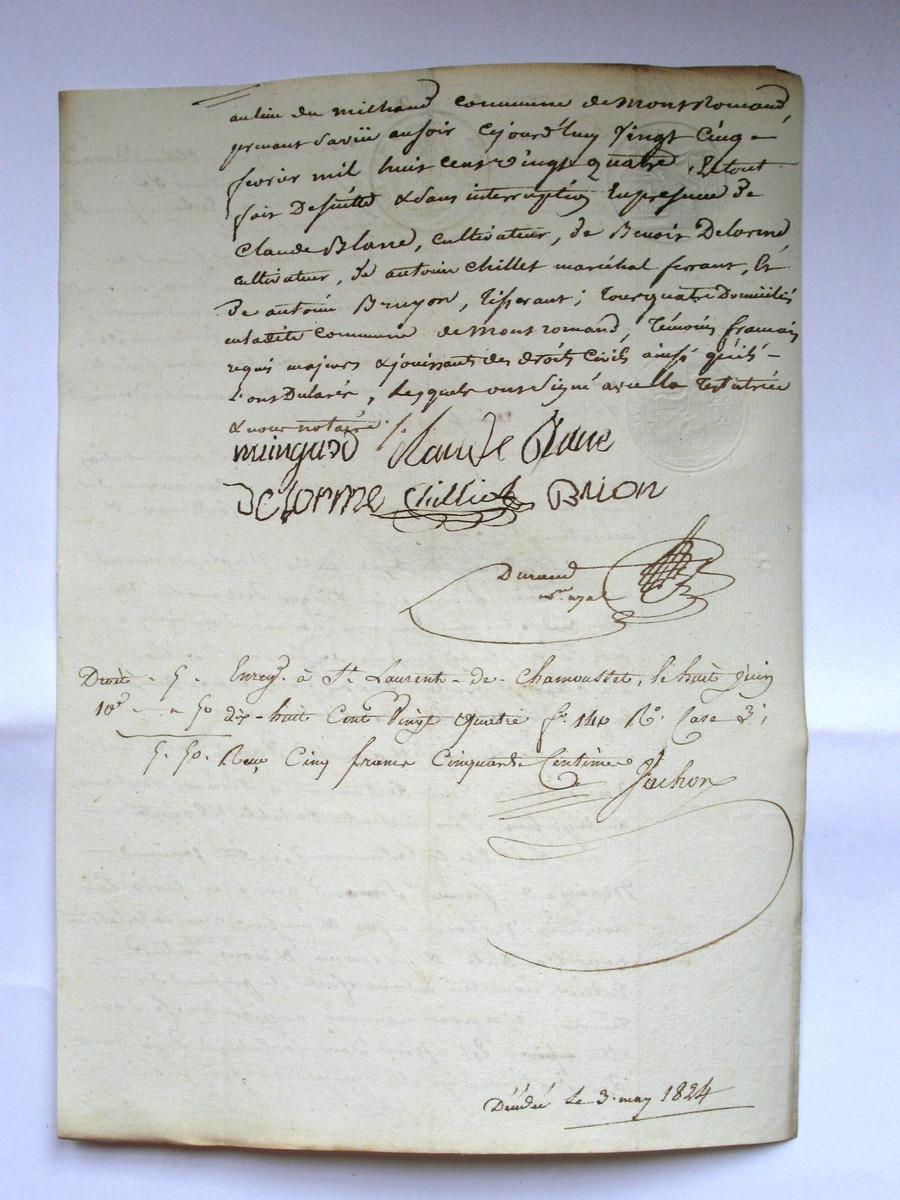 au lieu du milhaud commune de montromand,
prenant d'avis au soir cejourd'huy vingt cinq
fevrier mil huit cent vingt quatre, Le tout
fait De suitte & sans interruption En presence de
Claude Blanc, cultivateur, de Benoit Delorme,
cultivateur, de antoine chillet maréchal ferrant, Et
de antoine Bruyon, tisserant; tous quatre Domiciliés
en ladite commune de montromand, témoins francais
requis majeurs & jouissants des droits civils ainsi qu'ils
L'ont Déclarés, lesquels ont signé avec la testatrice
& nous notaire ./.
muingard Claude Blanc
Delorme Chilliet Brion
Durand
Droit - 5 - Enreg. à St. Laurent-de-Chamousset, le huit juin
10e - " 50 dix-huit Cent Vingt Quatre fo. 140 Ro. Case 3;
5. 50. Reçu Cinq francs Cinquante Centimes Jachon
Décédée Le 3. may 1824